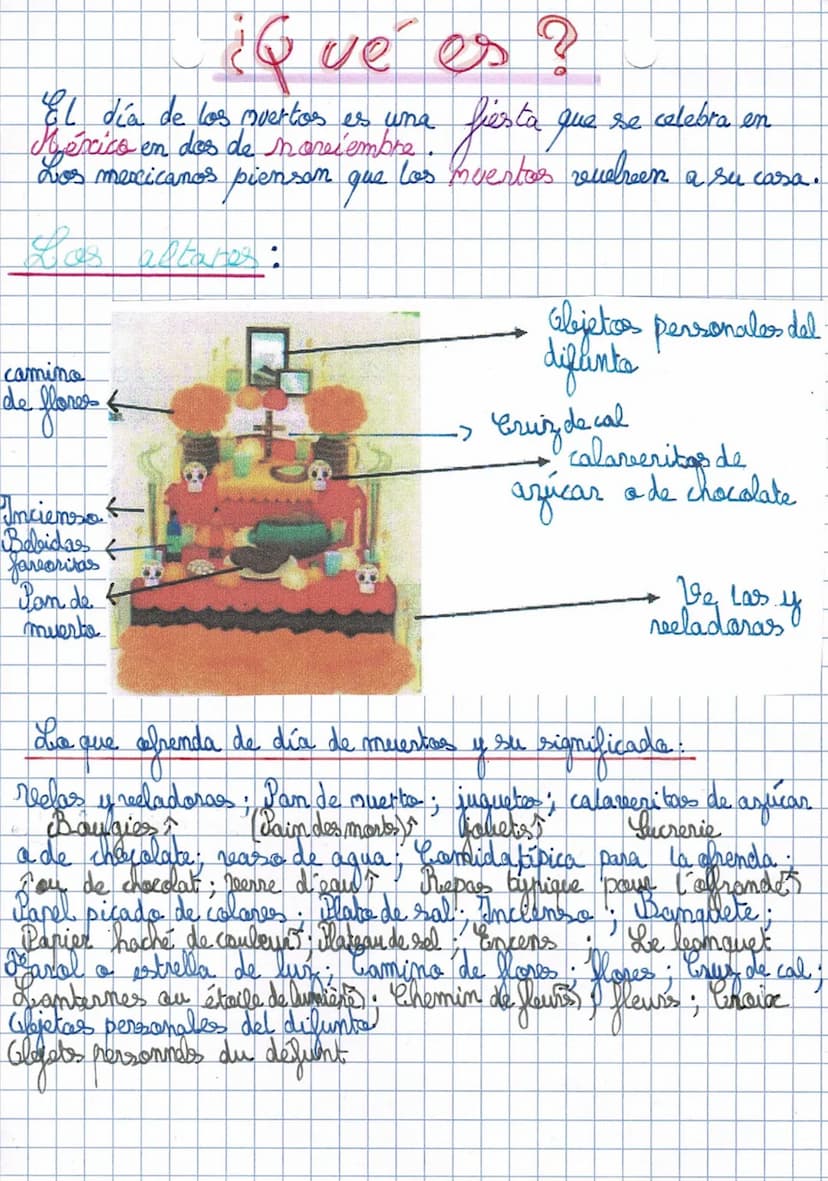 ¿Qué es?
El día de los muertos es una fiesta que se celebra en
México en dos de noreiembre.
Los mexicanos piensan que los muertos vuelveen a su casa.
Los altares:
Objetos personales del
difunto
camino
de flores
Cruz de cal
calaveritas de
azúcar o de chocolate
Incienso
Bebidas
favoritas
Pan de
muerto
Velas y
veladoras
Lo que ofrenda de día de muertos y su significado:
Velas y veladoras; Pan de muerto; juguetes; calaveritas de azúcar
Bougies ↑ (Pain des morts)↑ jouets↑ Sucrerie
o de chocolate; vaso de agua; Comida típica para la ofrenda;
↑ou de chocolat; verre d'eau↑ Repas typique pour l'offrande↑
Papel picado de colores; Plato de sal; Incienso; Banquete;
Papier haché de couleur↑; Plateau de sel; Encens; Le banquet
Farol o estrella de luz; Camino de flores; flores; Cruz de cal;
Lanternes ou étoile de lumière); Chemin de fleurs); fleurs; Croix
Objetos personales del difunto
Objets personnels du défunt